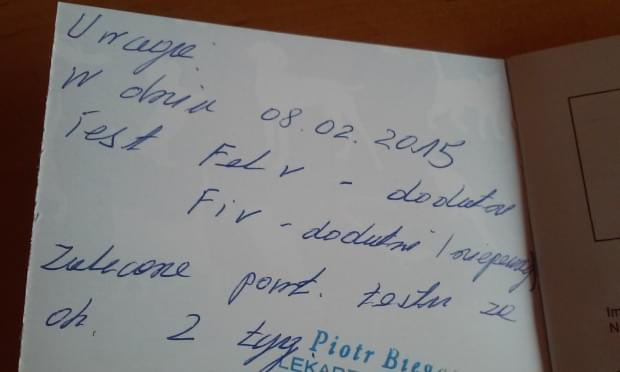 Uwaga:
W dniu 08.02.2015
Test FeLV - dodatni
Fiv - dodatni / niepewny
Zalecone powt. testu za
ok. 2 tyg.
Piotr Biega
LEKARZ
Im
N